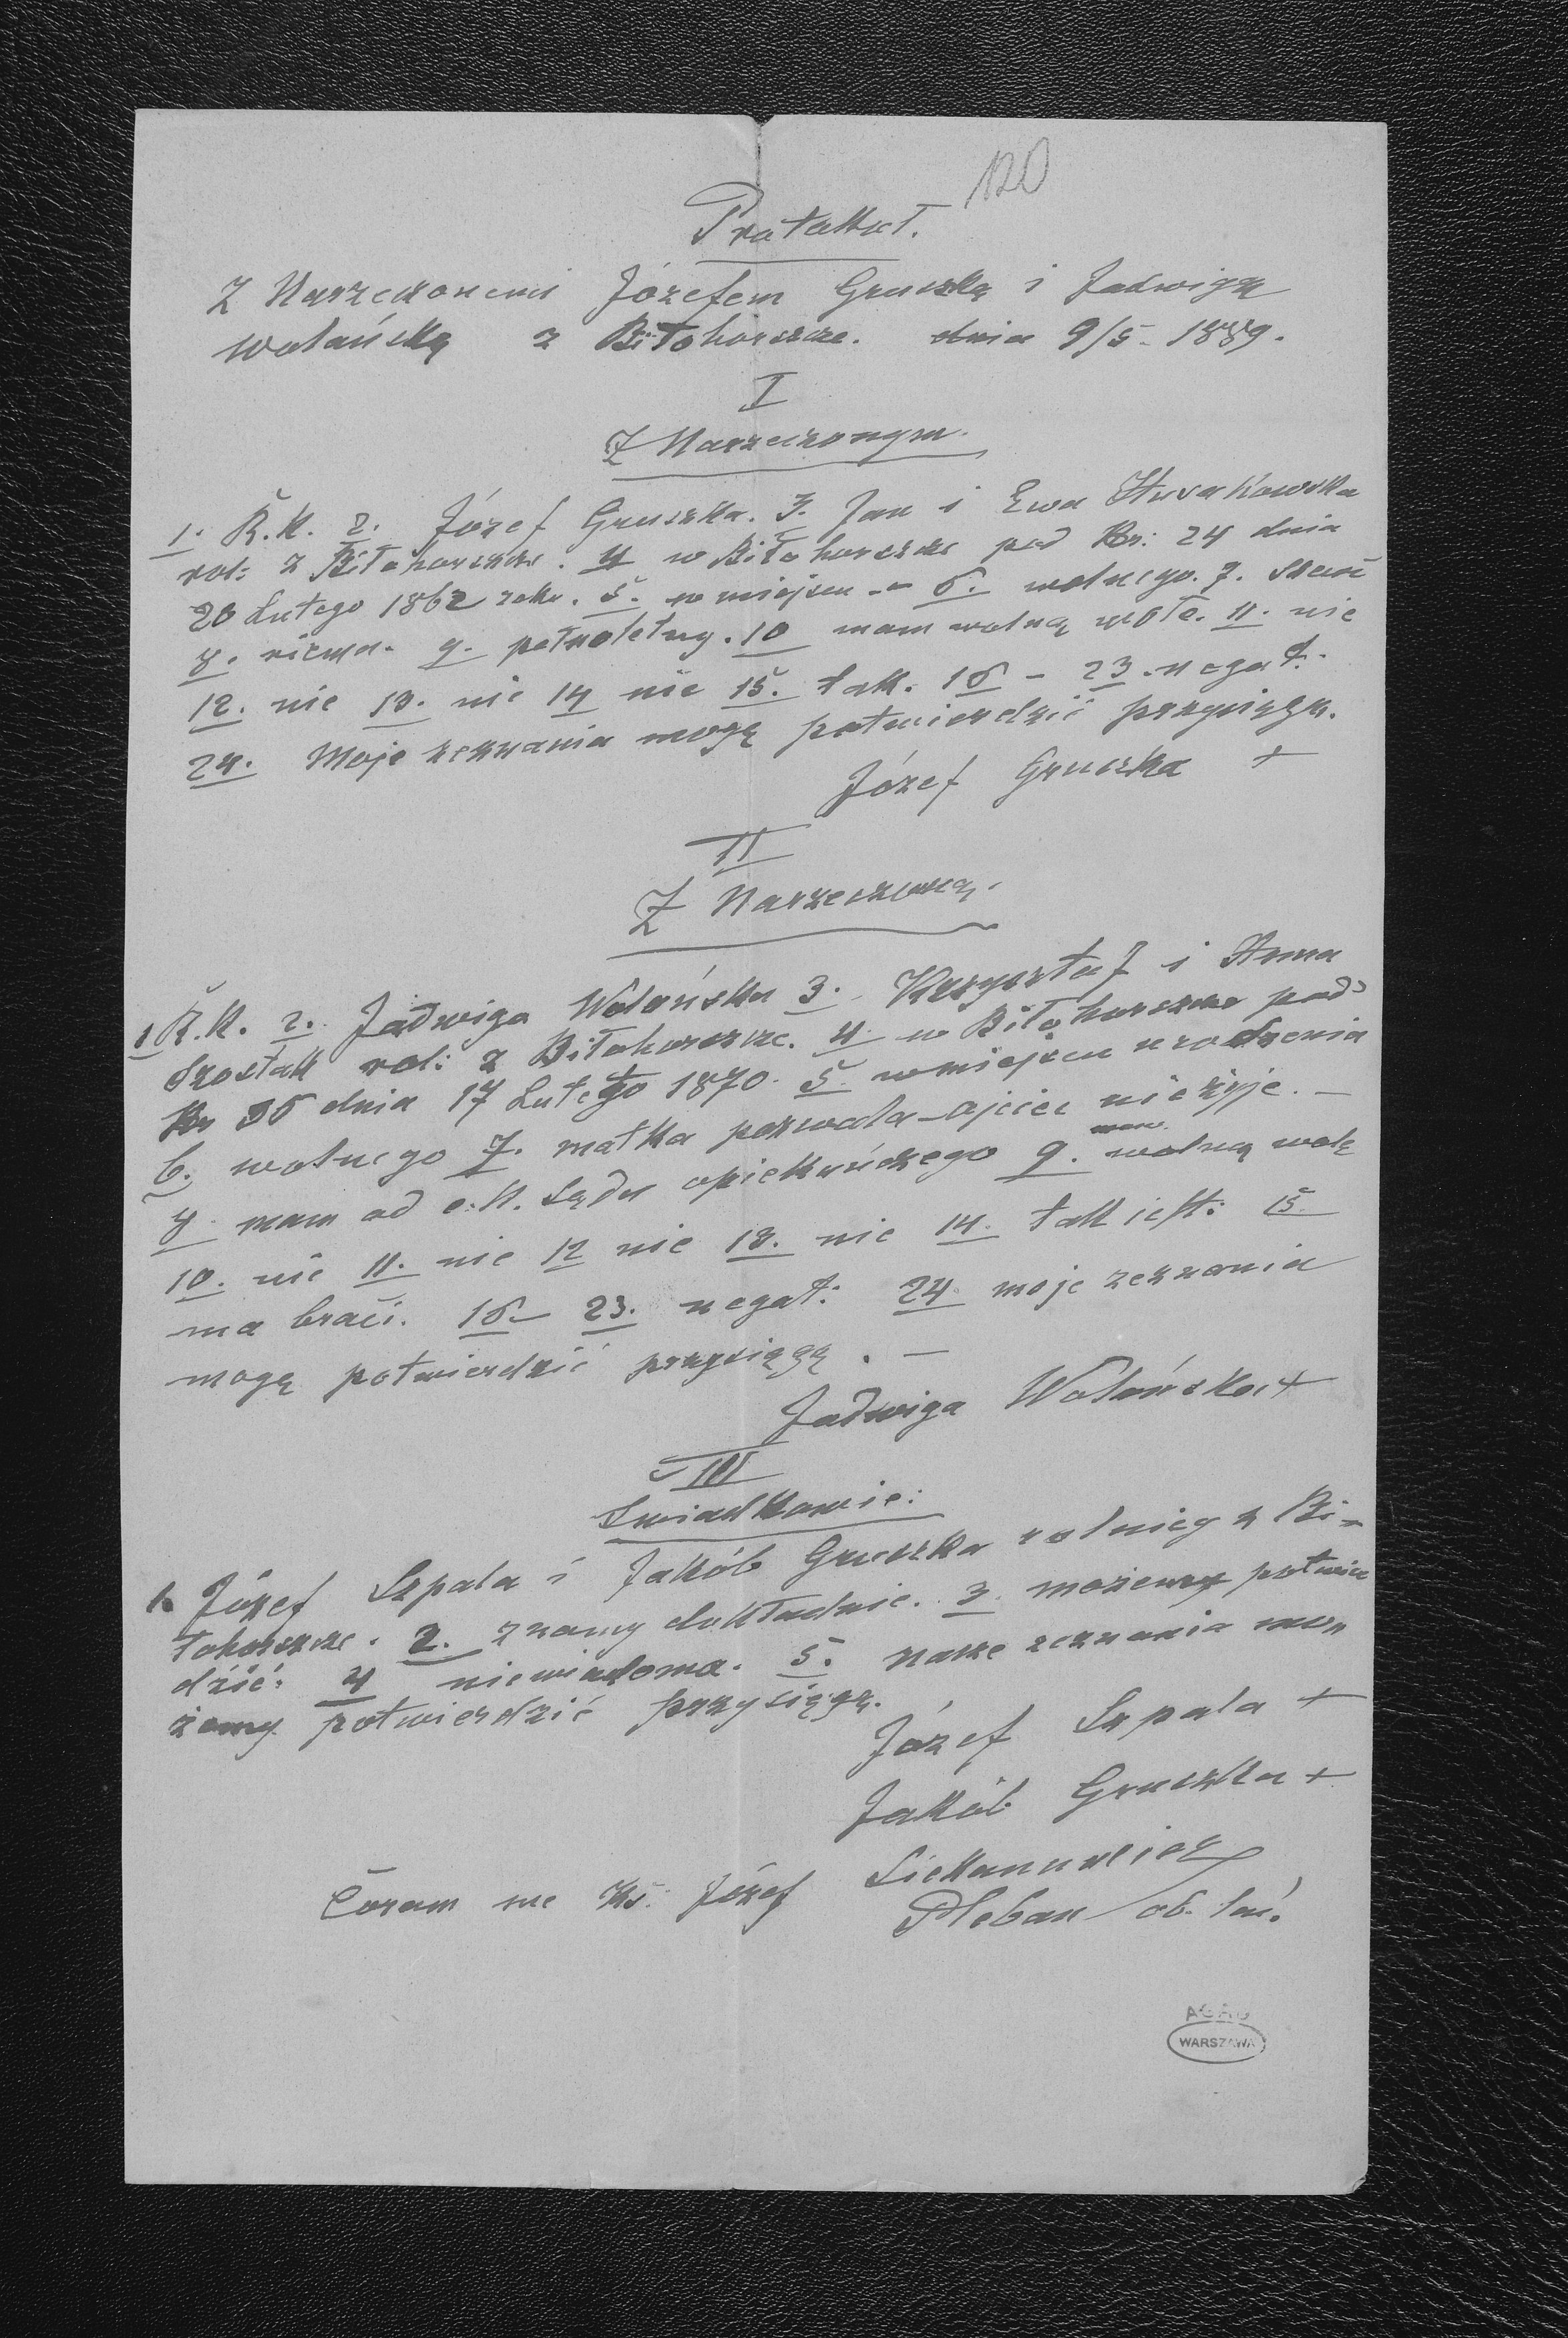 120
Protokuł.
Z Narzeczonemi Józefem Gruszką i Jadwigą
Wolańską z Biłohorszcze. dnia 9/5 - 1889.
I
Z Narzeczonym.
1. R.K. 2. Józef Gruszka. 3. Jan i Ewa Husakowska
rol: z Biłohorszcze. 4 w Biłohorszcze pod Nr: 24 dnia
20 Lutego 1862 roku. 5. w miejscu - 6. wolnego. 7.
8. niema. 9. pełnoletny. 10 mam wolną wole. 11. nie
12. nie 13. nie 14 nie 15. tak. 16 - 23. negat:
24. Moje zeznania mogę potwierdzić przysięgą.
Józef Gruszka +
II
Z Narzeczoną.
1 R.K. 2. Jadwiga Wolańska 3. Krzysztof i Anna
Szostak rol: z Biłohorszcze. 4 w Biłohorszcze pod
Nr 35 dnia 17 Lutego 1870. 5. w miejscu urodzenia
6. wolnego 7. matka pozwala - ojciec nie żyje. -
8. mam od c.k. Sądu opiekuńczego 9. mam wolną wolę
10. nie 11. nie 12 nie 13. nie 14. tak jest: 15.
ma braci. 16 - 23. negat: 24. moje zeznania
mogę potwierdzić przysięgą. -
Jadwiga Wolańska +
III
Swiadkowie:
1. Józef Szpala i Jakób Gruszka rolnicy z Bi-
łohorszcze. 2. znamy dokładnie. 3. możemy potwier
dzić. 4 niewiadomo. 5. nasze zeznania mo
żemy potwierdzić przysięgą.
Józef Szpala +
Jakób Gruszka +
Coram me Ks. Józef Siekanowicz
Pleban ob. łac.
AGAD
WARSZAWA